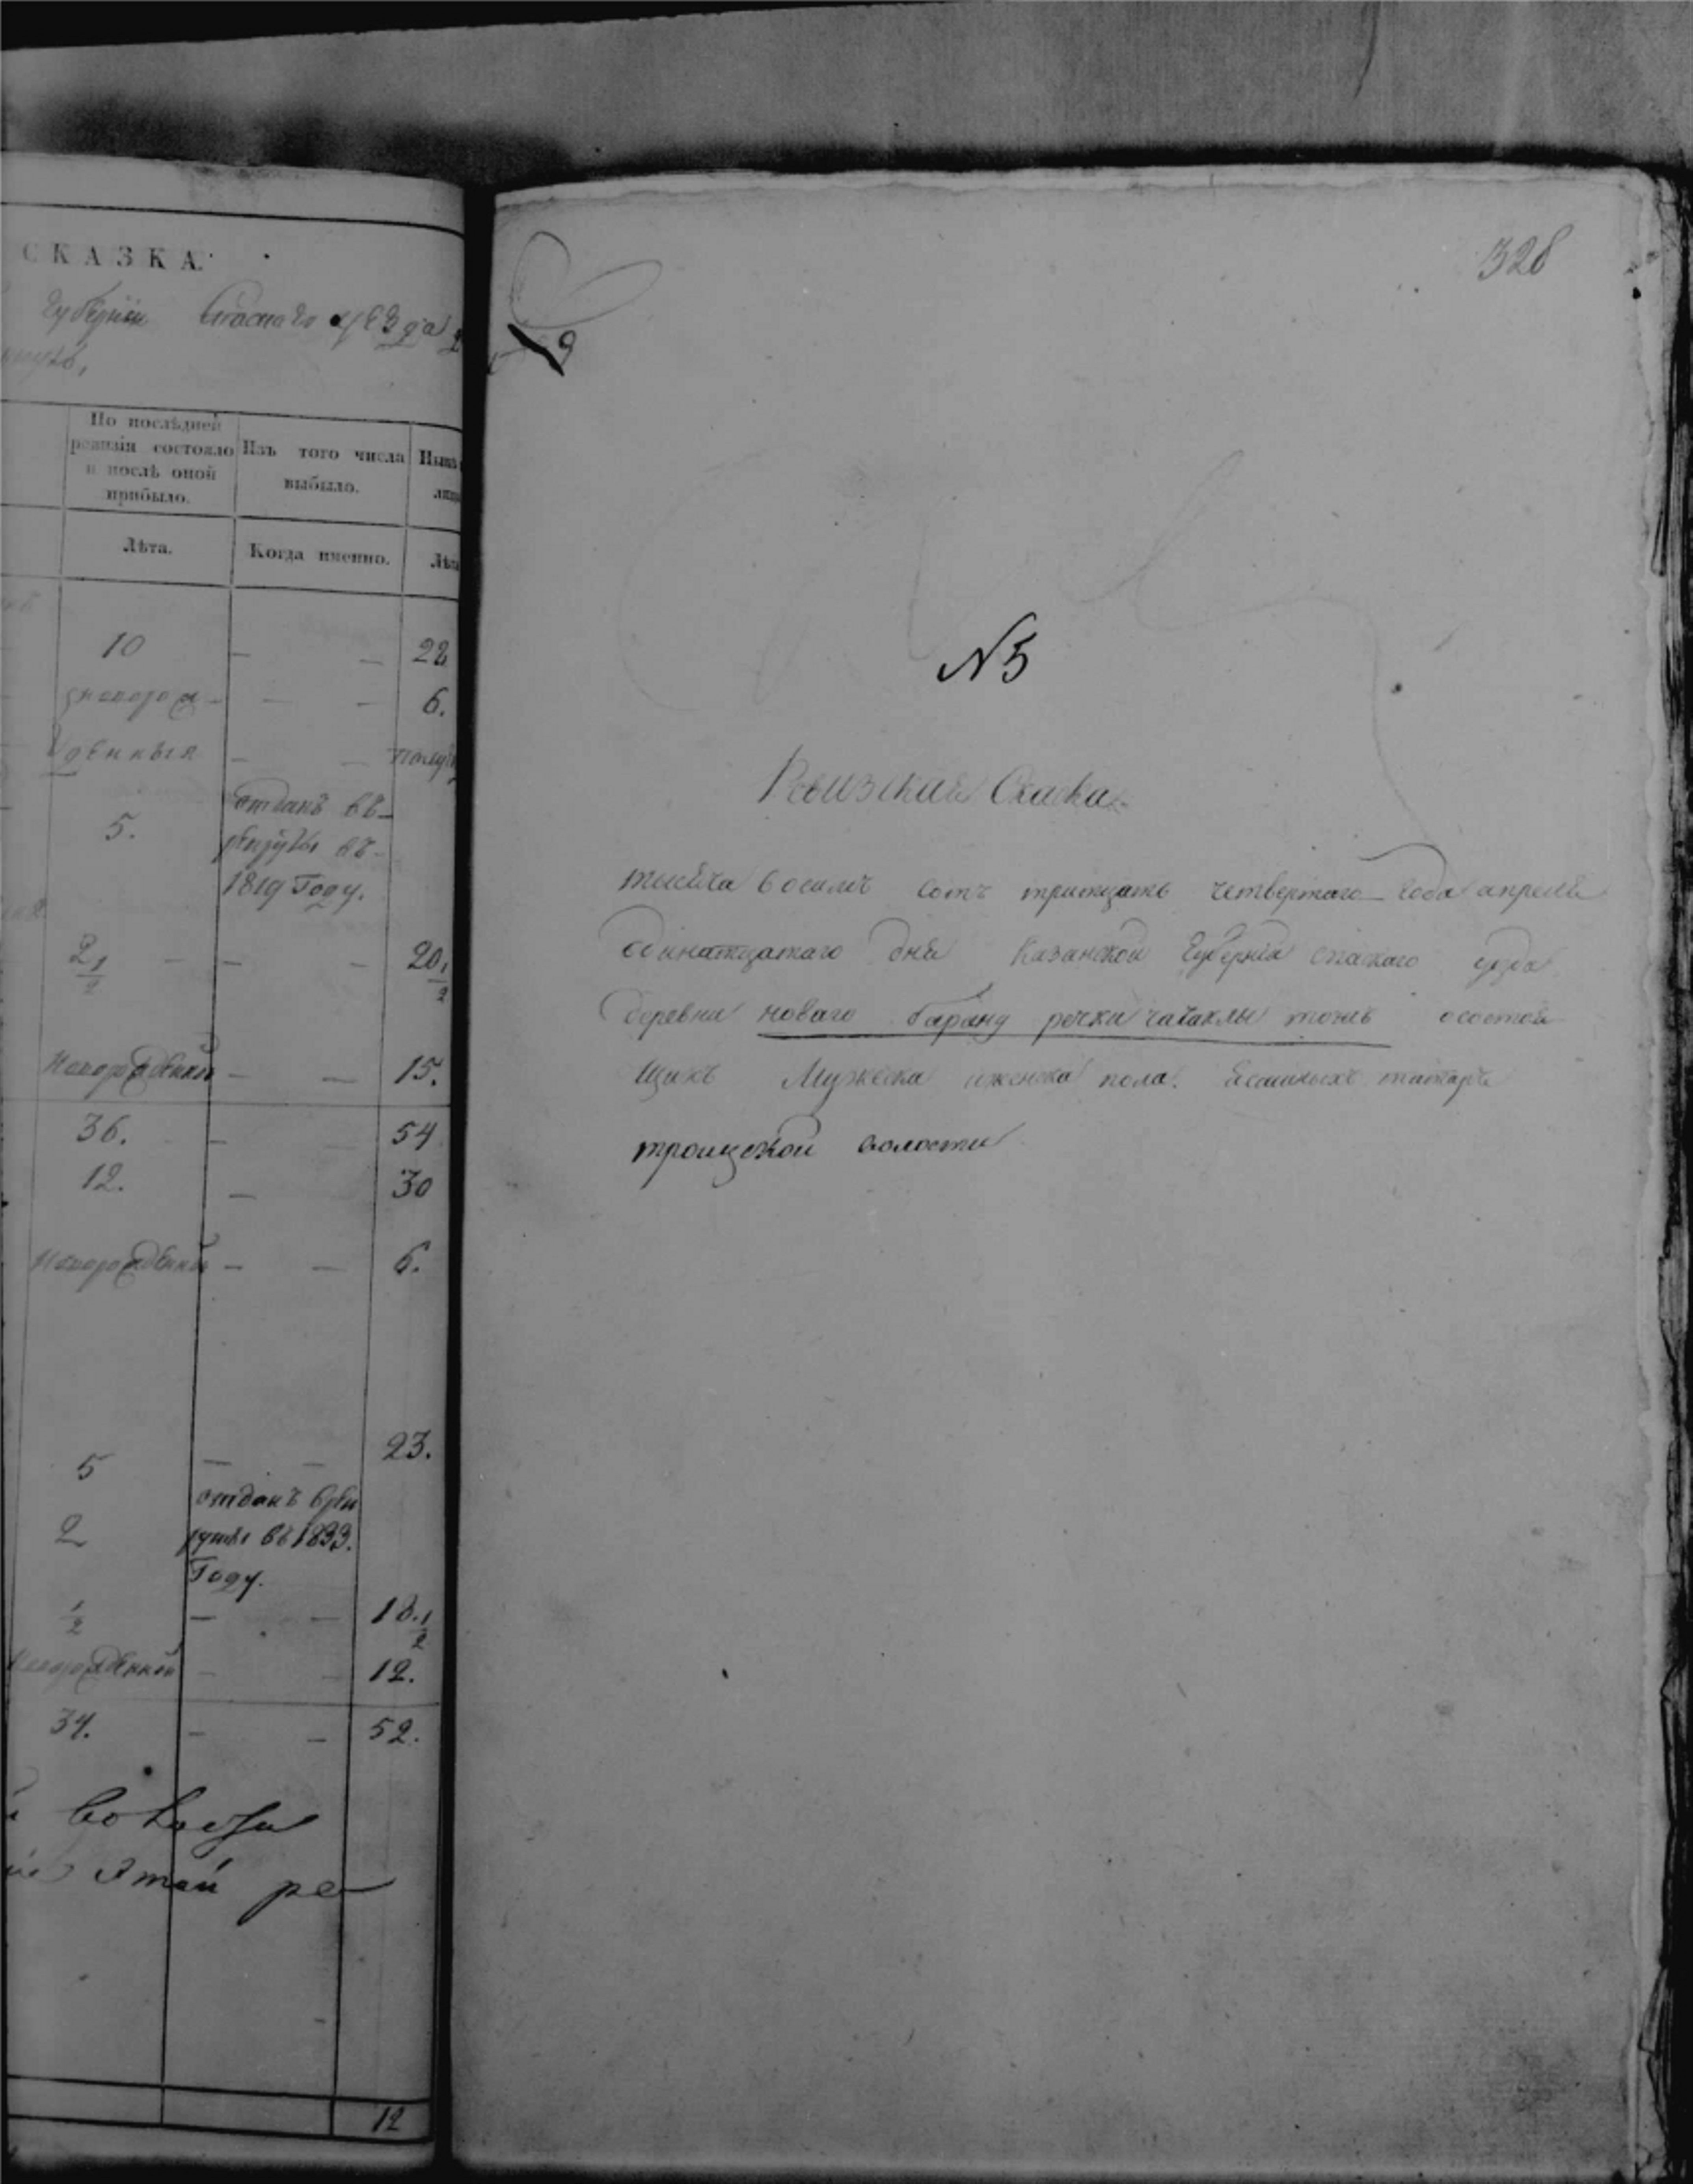 СКАЗКА.
Губернiи Спаснаго уѣзда
По послѣдней
ревизiи состояло
и послѣ оной
прибыло.
Изъ того числа
выбыло.
Лѣта.
Когда именно.
10 — — 22
6.
5.
отданъ въ
рекруты въ
1819 Году.
2 1/2 — — 20 1/2
Новорожденной — — 15.
36. — 54
12. — 30
Новорожденной — — 6.
5 — — 23.
2
отданъ в рек
руты въ 1833.
Году.
1/2 — — 18. 1/2
Новорожденной — — 12.
34. — — 52.
ре
12
328
9
N 5
Ревизская Скаска
тысяча восемь сотъ тритцать четвертаго года апреля
одинатцатаго дня Казанской Губернiи спаскаго уезда
деревни новаго барану речки чачаклы тожъ осостоя
щихъ Мужеска иженска пола. Ясашныхъ татаръ
троицской волости